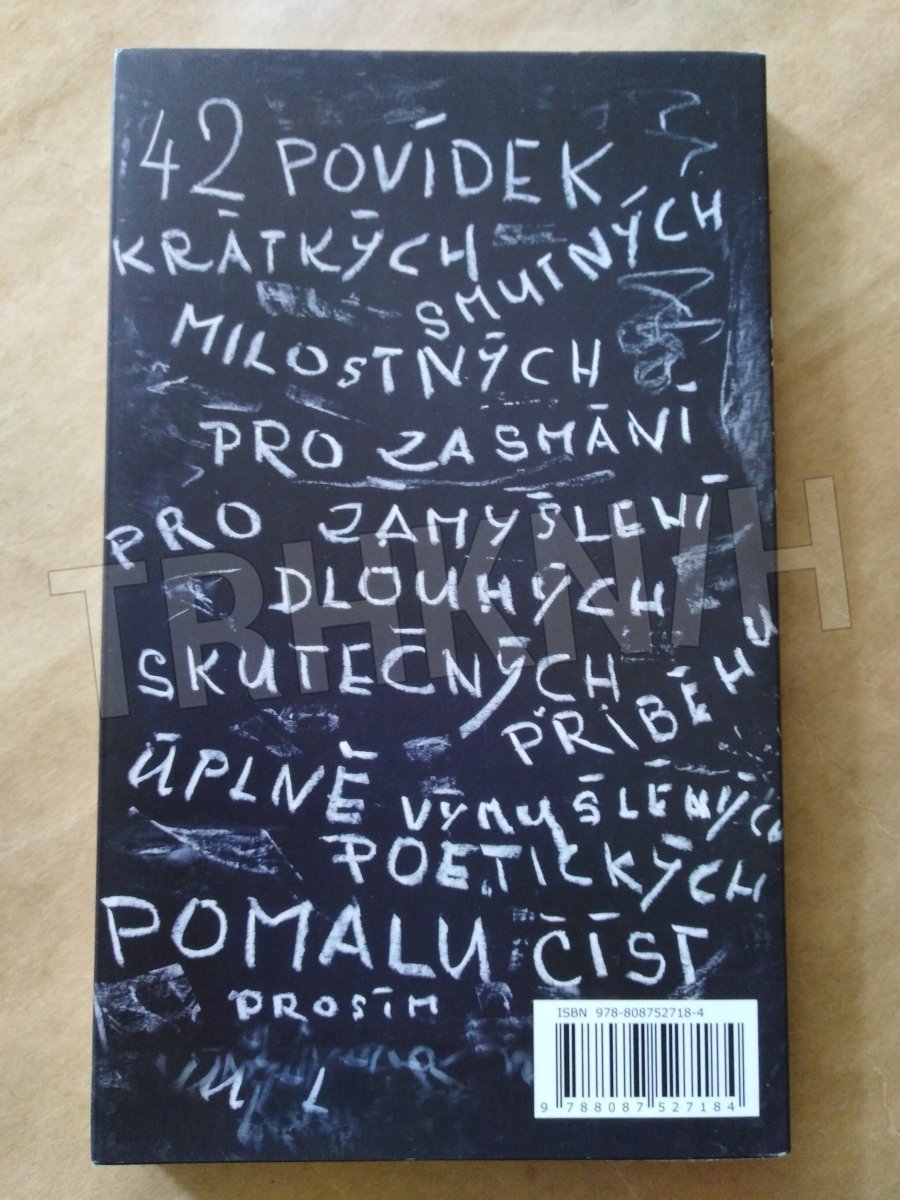 42 POVÍDEK
KRÁTKÝCH
SMUTNÝCH
MILOSTNÝCH
PRO ZASMÁNÍ
PRO ZAMYŠLENÍ
DLOUHÝCH
SKUTEČNÝCH
PŘÍBĚHU
ÚPLNĚ
VÝMYŠLENÝCH
POETICKÝCH
POMALU ČÍST
PROSÍM
ISBN 978-808752718-4
9 788087 527184
TRHKNIH